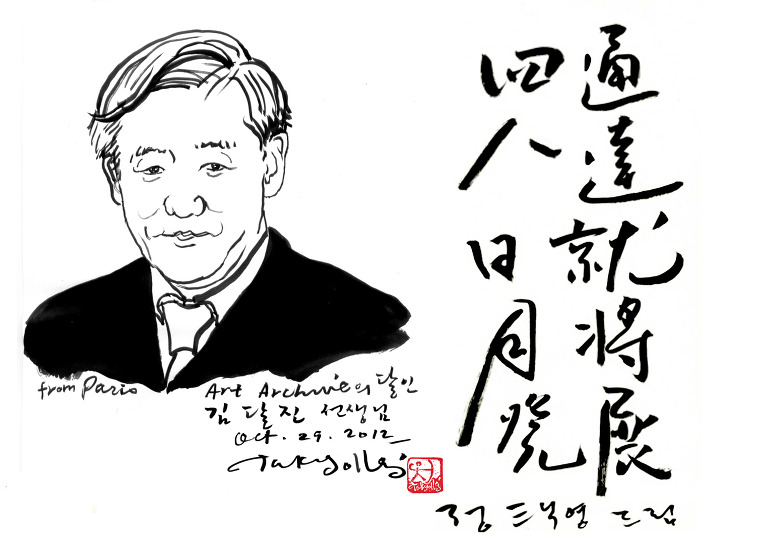 四通
八達
日就
月將
發展
from Paris
Art Archive의 달인
김 달 진 선생님
Oct. 29. 2012
정 택영 드림